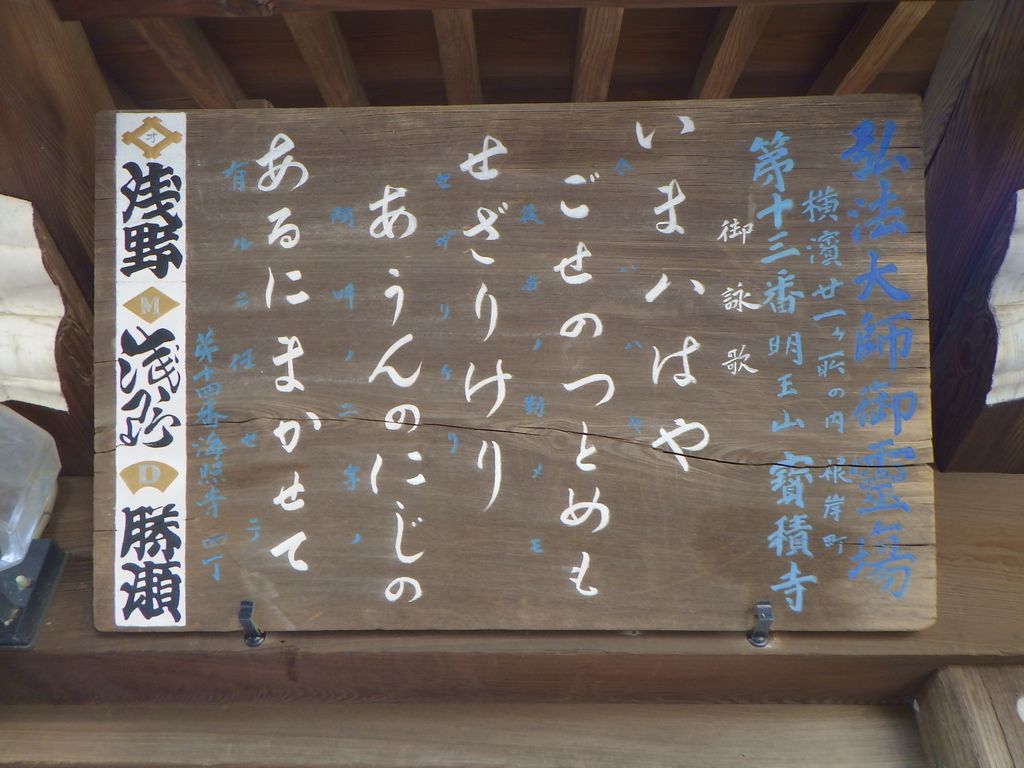 弘法大師御霊場
横濱廿一ヶ所の内 根岸町
第十三番明王山 寳積寺
御詠歌
いまハはや
今ハハヤ
ごせのつとめも
後世ノ勤メモ
せざりけり
セザリケリ
あうんのにじの
阿吽ノ二字ノ
あるにまかせて
有ルニ任セテ
第十四番海照寺 四丁
オ 浅野
M
D 勝瀬